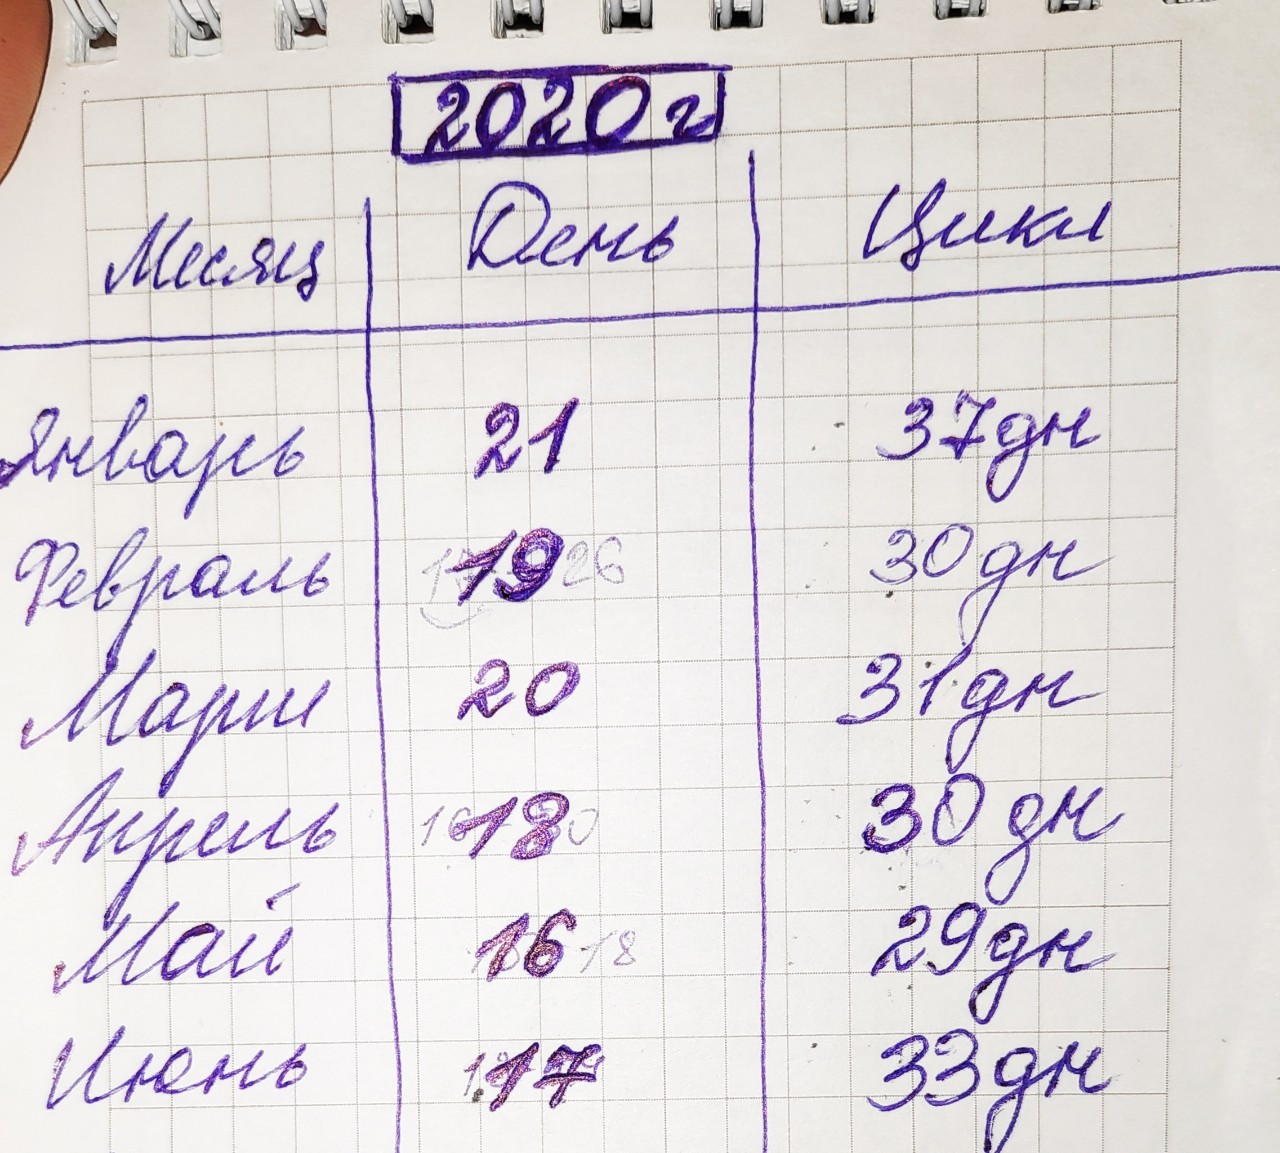 2020 г
Месяц День Цикл
Январь 21 37дн
Февраль 19 26 30дн
Март 20 31дн
Апрель 16 18 30дн
Май 16 18 29дн
Июнь 17 33дн